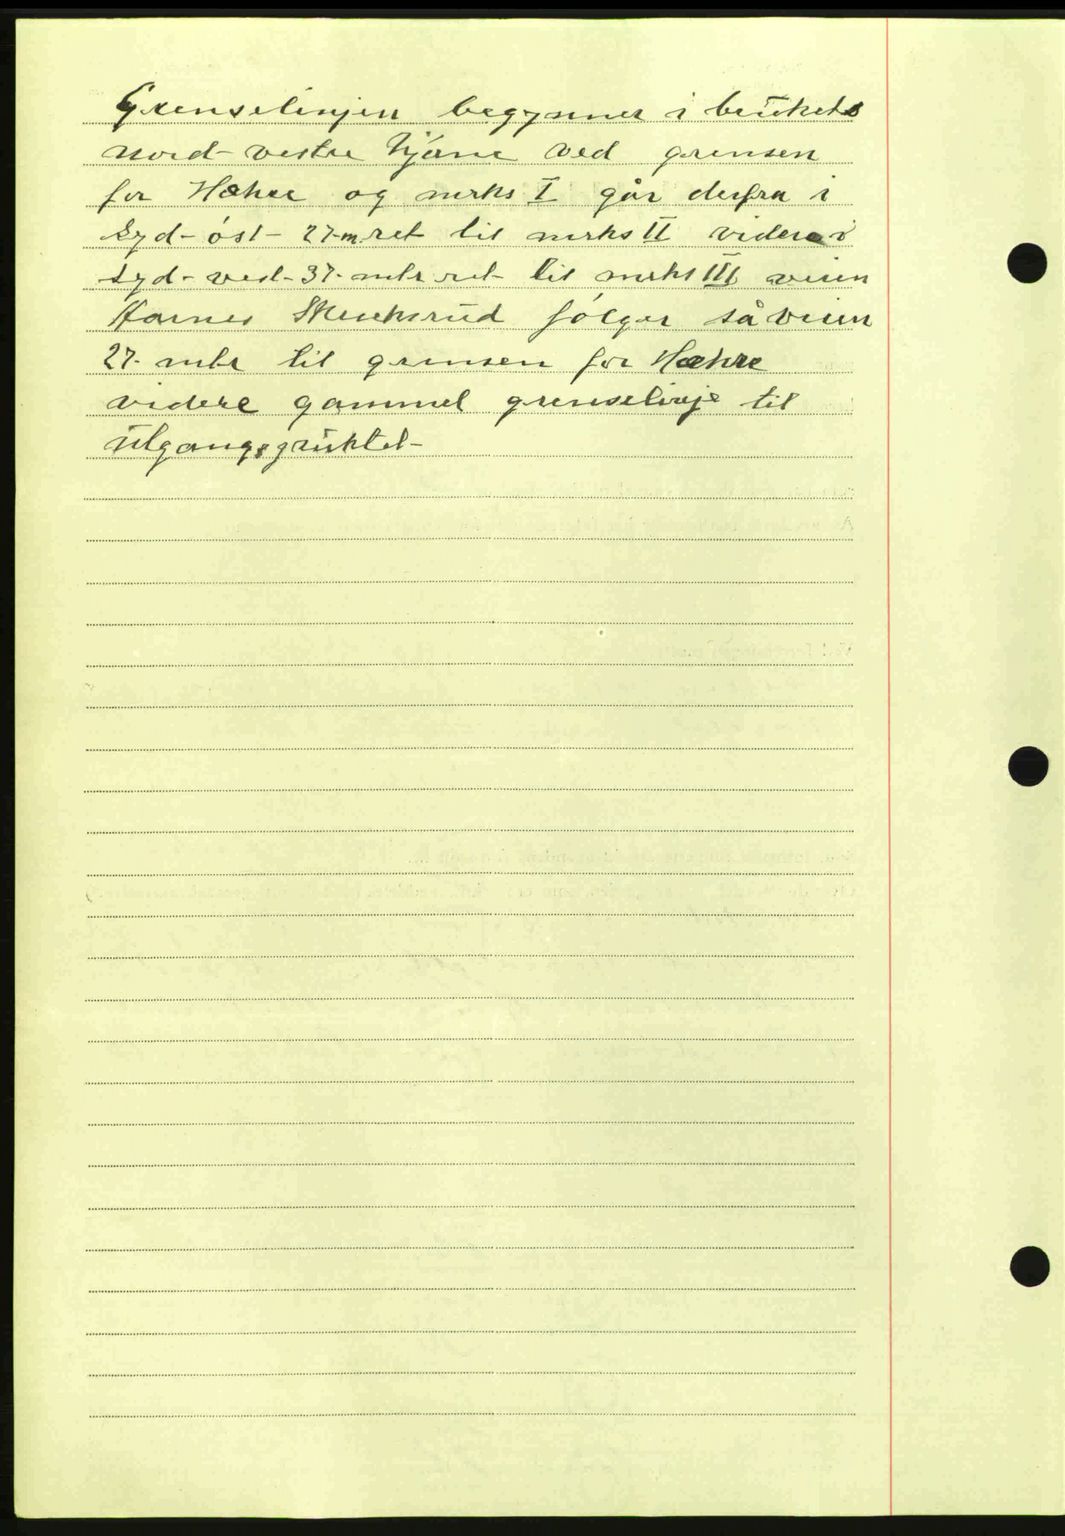 Grenselinjen begynner i brükets
nord-vestre hjørne ved grensen
for Hæhre og merks I går derfra i
syd-øst- 27-m ret til merks II videre i
syd-vest-37-mtr ret til merks III veien
Hornes følger så veien
27-mtr til grensen for Hæhre
videre gammel grenselinje til